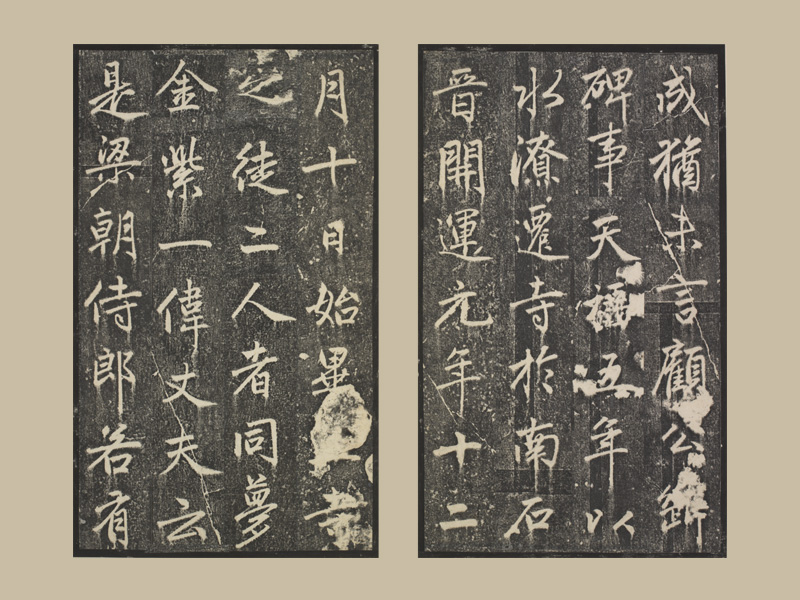 成猶未言顧公
碑事天福五年以
水潦遷寺於南石
晉開運元年十二
月十日始畢寺
之徒二人者同夢
金紫一偉丈夫云
是梁朝侍郎若有